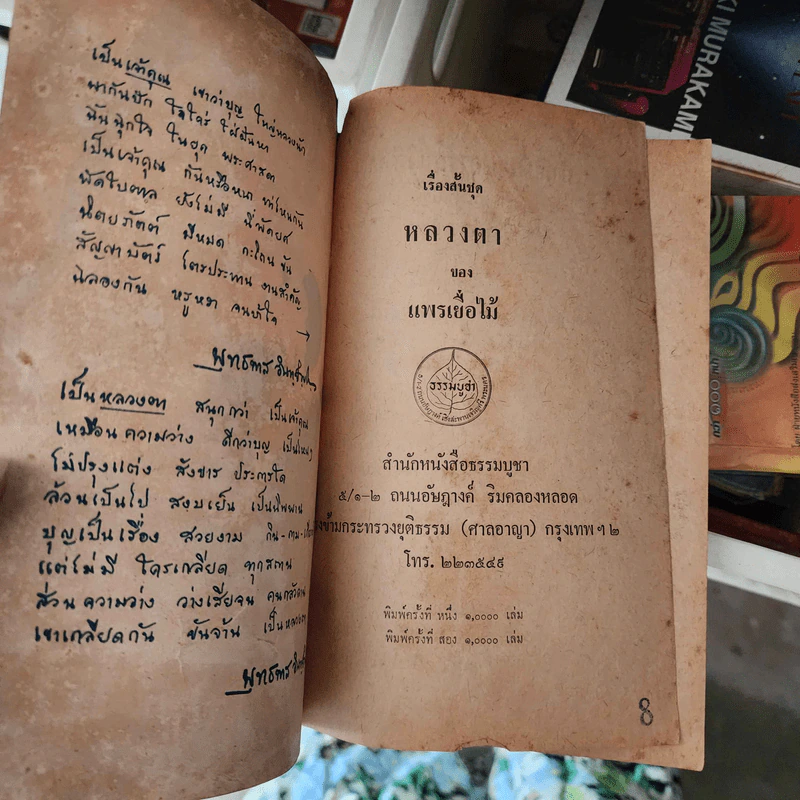 เป็นเจ้าคุณ เขาว่าบุญ ใหญ่หลวงนัก
พากันชัก ใจใคร่ ใฝ่ฝันหา
นั้นฉุกใจ ในยุค พระศาสดา
เป็นเจ้าคุณ กันหรือหนา ท่าไหนกัน
พัดใบตาล ยังไม่มี นี่พัดยศ
นิตยภัตต์ มีหมด กะไดน ขั้น
สัญญาบัตร์ โตรประทาน งานสำคัญ
ฉลองกัน หรูหรา จนบ้าใจ →
พุทธทาส อินทปัญโญ
เป็นหลวงตา สนุกกว่า เป็นเจ้าคุณ
เหมือนความว่าง ดีกว่าบุญ เป็นไหนๆ
ไม่ปรุงแต่ง สังขาร ประการใด
ล้วนเป็นไป สงบเย็น เป็นนิพพาน
บุญเป็นเรื่อง สวยงาม กิน-กาม-
แต่ไม่มี ใครเกลียด ทุกสถาน
ส่วนความว่าง ว่างเสียจน คนกลัว
เขาเกลียดกัน ขันจ้าน เป็นหลวงตา
พุทธทาส
เรื่องสั้นชุด
หลวงตา
ของ
แพรเยื่อไม้
ธรรมบูชา
สำนักหนังสือธรรมบูชา
๕/๑-๒ ถนนอัษฎางค์ ริมคลองหลอด
ข้ามกระทรวงยุติธรรม (ศาลอาญา) กรุงเทพฯ ๒
โทร. ๒๒๓๕๔๙
พิมพ์ครั้งที่ หนึ่ง ๑,๐๐๐๐ เล่ม
พิมพ์ครั้งที่ สอง ๑,๐๐๐๐ เล่ม
8
KI MURAKAMI
กว่า ๑๐๐๐